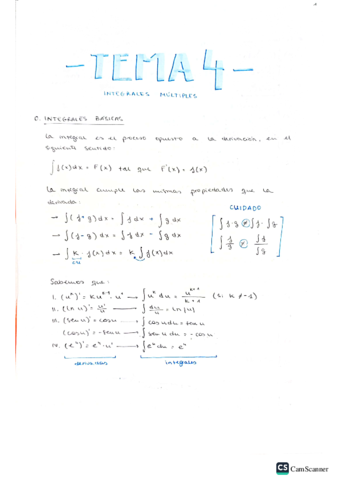 - TEMA 4 -
INTEGRALES MÚLTIPLES
0. INTEGRALES BÁSICAS
La integral es el proceso opuesto a la derivación, en el
siguiente sentido:
∫ f(x) dx = F(x) tal que F'(x) = f(x)
La integral cumple las mismas propiedades que la
derivada:
CUIDADO
→ ∫(f+g) dx = ∫f dx + ∫g dx
→ ∫(f-g) dx = ∫f dx - ∫g dx
→ ∫ k · f(x) dx = k ∫ f(x) dx
[ ∫f·g ≠ ∫f · ∫g
∫ f/g ≠ ∫f / ∫g ]
Sabemos que:
I. (u^k)' = k u^k-1 · u' → ∫ u^k du = u^k+1 / k+1 (si k ≠ -1)
II. (ln u)' = u'/u → ∫ du/u = ln |u|
III. (sen u)' = cos u → ∫ cos u du = sen u
(cos u)' = -sen u → ∫ sen u du = - cos u
IV. (e^u)' = e^u · u' → ∫ e^u du = e^u
derivadas integrales
CS CamScanner